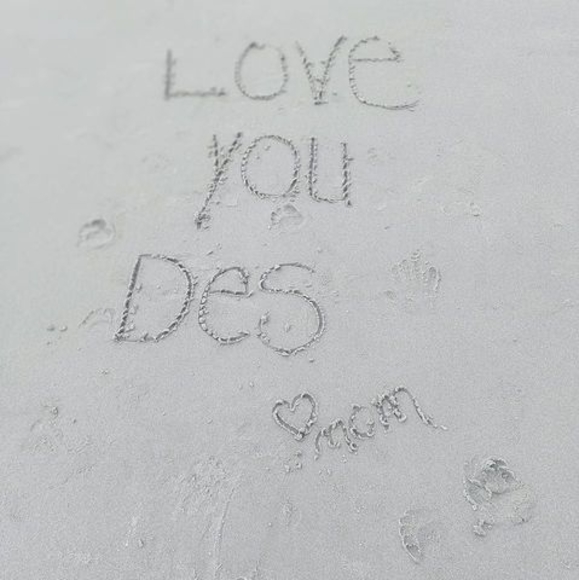 Love
you
Des
♡ mom